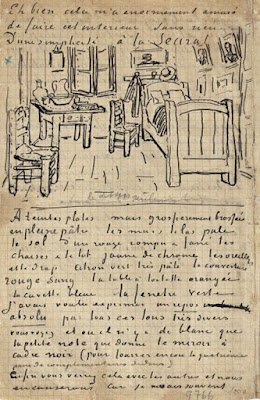 Eh bien cela m'a enormement amusé
de faire cet interieur sans rien
D'une simplicité à la Seurat
A teintes plates mais grossierement brossées
en pleine pâte les murs lilas pale
le sol d'un rouge rompu & fané les
chaises & le lit jaune de chrome les oreillers
et le drap citron vert très pâle la couverture
rouge sang la table à toilette orangée
la cuvette bleue la fenetre verte
J'avais voulu exprimer un repos
absolu par tous ces tons très divers
vous voyez et où il n'y a de blanc que
la petite note que donne le miroir à
cadre noir (pour fourrer encore la quatrième
paire de complementaires dedans)
Enfin vous verrez cela avec les autres et nous
en causerons car je ne sais souvent